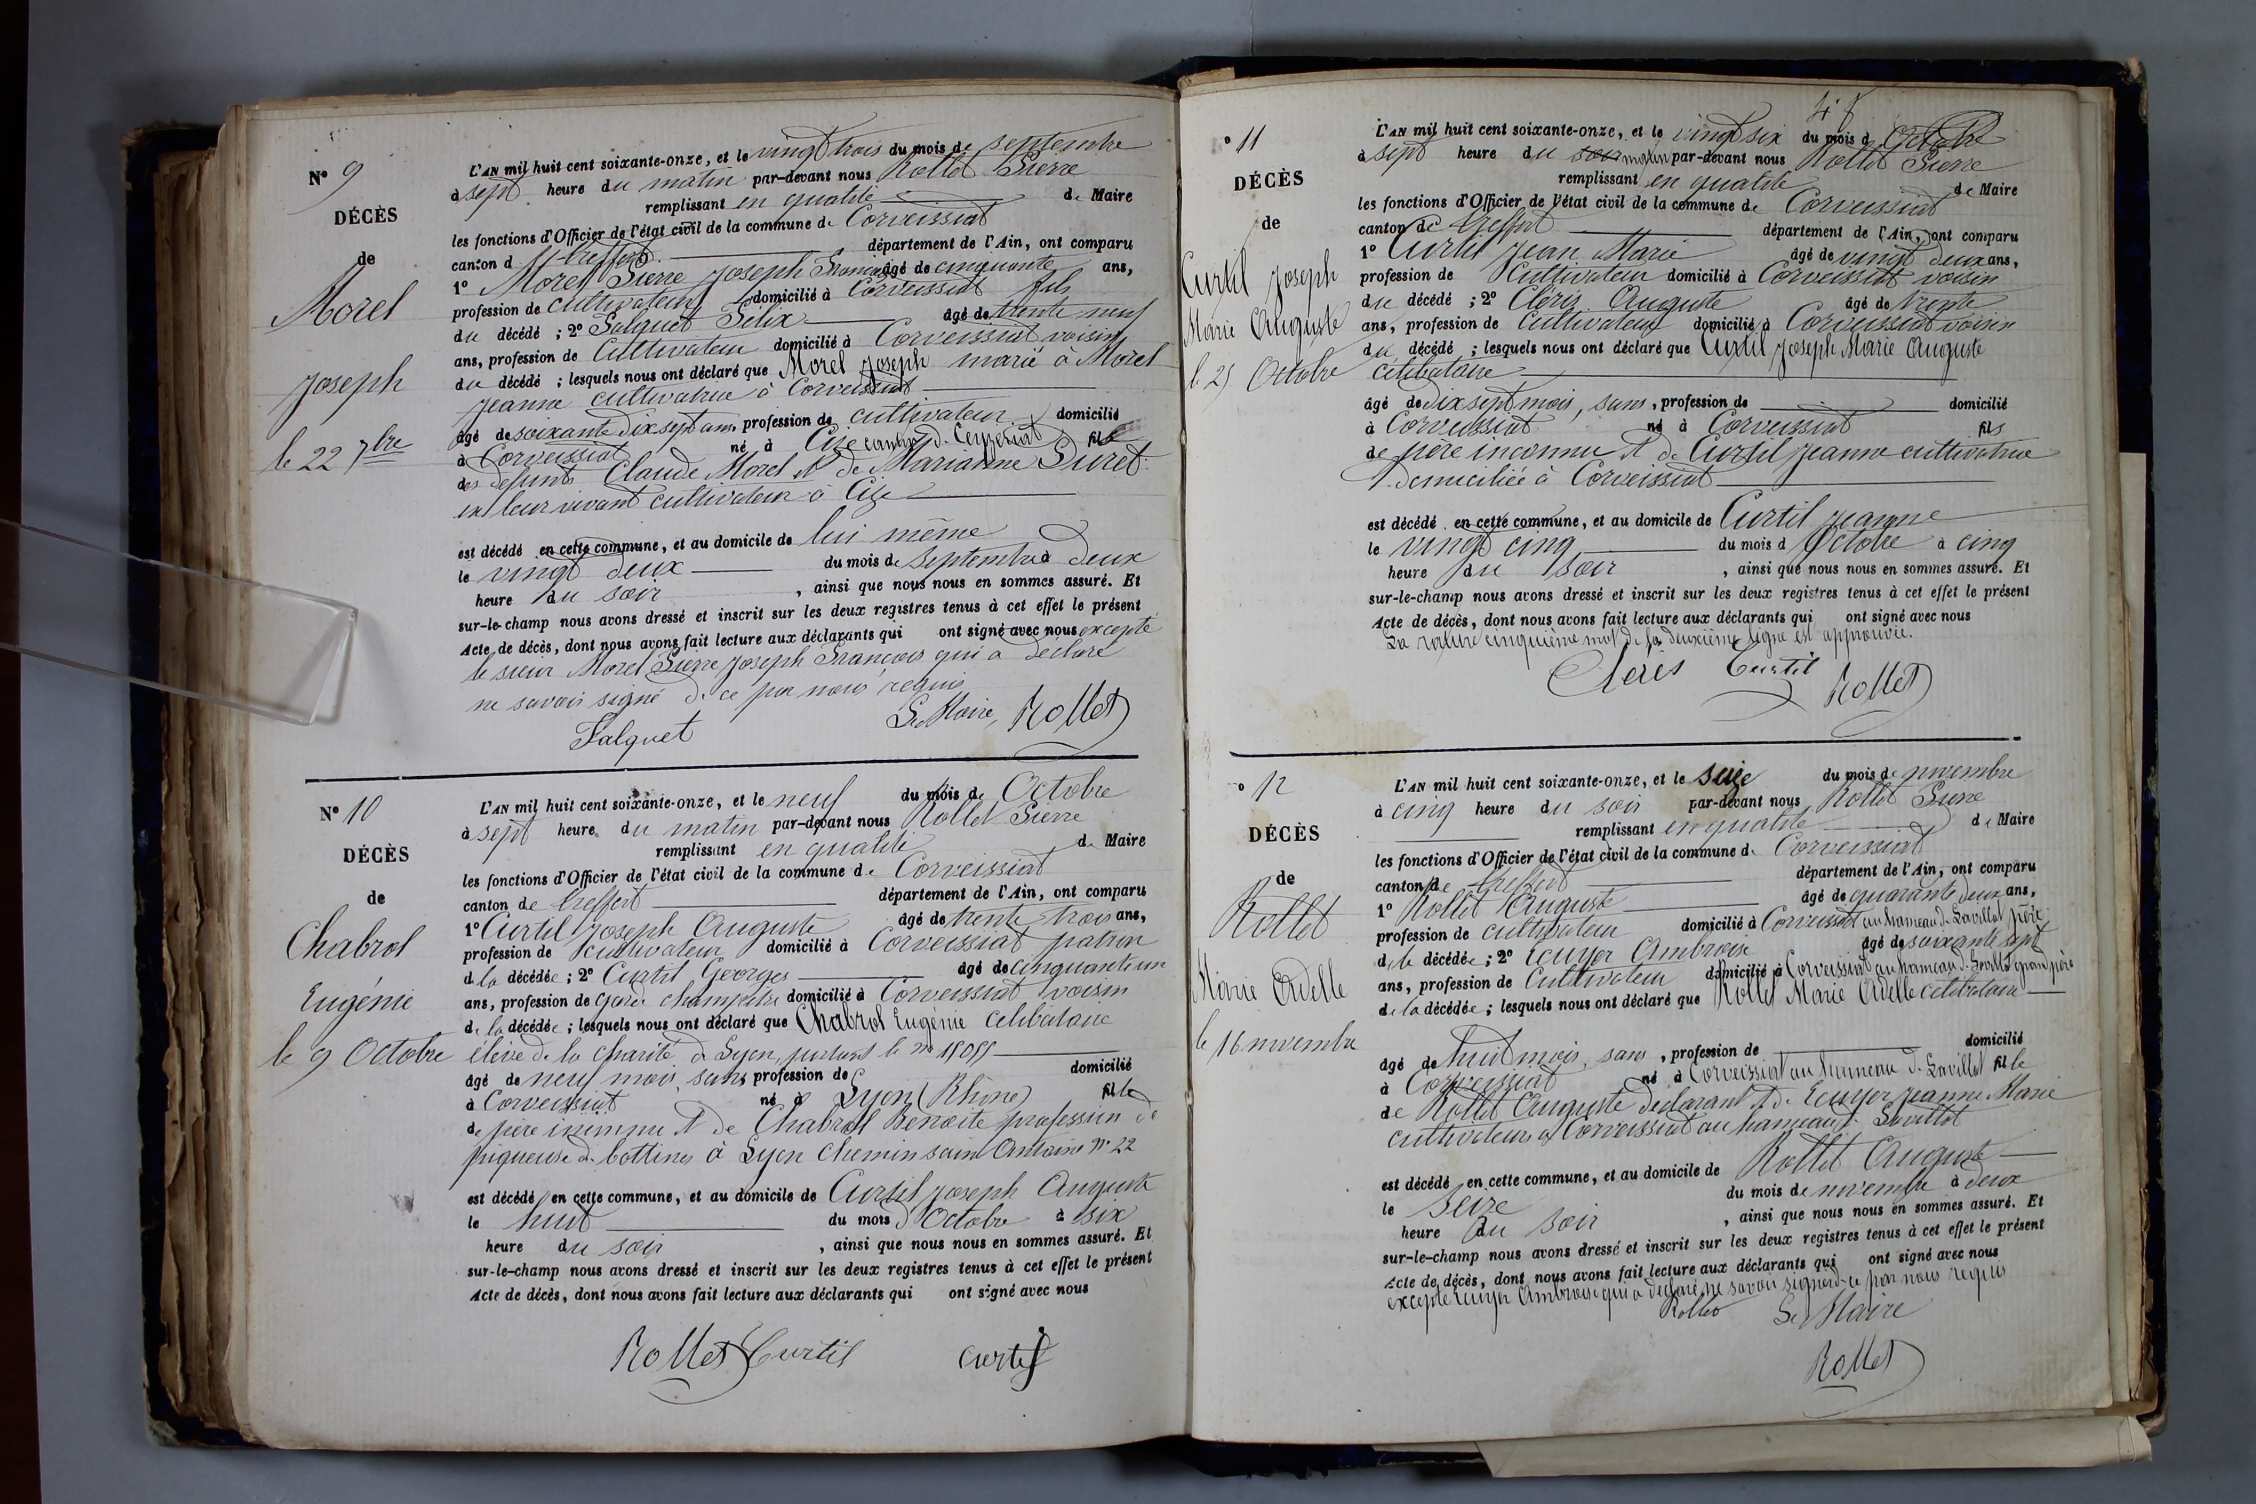 N° 9
DÉCÈS
de
Morel
Joseph
le 22 7bre
L'AN mil huit cent soixante-onze, et le vingt trois du mois de septembre
à sept heure du matin par-devant nous Rollet Pierre
remplissant en qualité de Maire
les fonctions d'Officier de l'état civil de la commune de Corveissiat
canton d Treffort département de l'Ain, ont comparu
1° Morel Pierre Joseph François âgé de cinquante ans,
profession de cultivateur domicilié à Corveissiat fils
du décédé ; 2° Salquet Félix âgé de trente neuf
ans, profession de Cultivateur domicilié à Corveissiat voisin
du décédé ; lesquels nous ont déclaré que Morel Joseph marié à Morel
Jeanne cultivatrice à Corveissiat
âgé de soixante dix sept ans profession de cultivateur domicilié
à Corveissiat né à Cize canton de Ceyzériat fils
des défunts Claude Morel et de Marianne Puret
en leur vivant cultivateur à Cize
est décédé en cette commune, et au domicile de lui même
le vingt deux du mois de septembre à deux
heure du soir , ainsi que nous nous en sommes assuré. Et
sur-le-champ nous avons dressé et inscrit sur les deux registres tenus à cet effet le présent
Acte de décès, dont nous avons fait lecture aux déclarants qui ont signé avec nous excepté
le sieur Morel Pierre Joseph François qui a déclaré
ne savoir signé de ce par nous requis
Salquet Le Maire, Rollet
N° 10
DÉCÈS
de
Chabrol
Eugénie
le 9 Octobre
L'AN mil huit cent soixante-onze, et le neuf du mois de Octobre
à sept heure du matin par-devant nous Rollet Pierre
remplissant en qualité de Maire
les fonctions d'Officier de l'état civil de la commune de Corveissiat
canton de Treffort département de l'Ain, ont comparu
1° Curtil Joseph Auguste âgé de trente trois ans,
profession de cultivateur domicilié à Corveissiat patron
de la décédée ; 2° Curtil Georges âgé de cinquante un
ans, profession de garde champêtre domicilié à Corveissiat voisin
de la décédée ; lesquels nous ont déclaré que Chabrol Eugénie célibataire
élève de la charité de Lyon, portant le n°
âgé de neuf mois, sans profession de domicilié
à Corveissiat né à Lyon (Rhône) fille
de père inconnu et de Chabrol Benoite profession de
piqueuse de bottines à Lyon Chemin saint Antoine N° 22
est décédé en cette commune, et au domicile de Curtil Joseph Auguste
le huit du mois d'Octobre à six
heure du soir , ainsi que nous nous en sommes assuré. Et
sur-le-champ nous avons dressé et inscrit sur les deux registres tenus à cet effet le présent
Acte de décès, dont nous avons fait lecture aux déclarants qui ont signé avec nous
Rollet Curtil Curtil
° 11
DÉCÈS
de
Curtil Joseph
Marie Auguste
le 25 Octobre
L'AN mil huit cent soixante-onze, et le vingt six du mois d Octobre
à sept heure du soir matin par-devant nous Rollet Pierre
remplissant en qualité de Maire
les fonctions d'Officier de l'état civil de la commune de Corveissiat
canton de Treffort département de l'Ain, ont comparu
1° Curtil Jean Marie âgé de vingt deux ans,
profession de Cultivateur domicilié à Corveissiat voisin
du décédé ; 2° Cléris Auguste âgé de trente
ans, profession de Cultivateur domicilié à Corveissiat voisin
du décédé ; lesquels nous ont déclaré que Curtil Joseph Marie Auguste
célibataire
âgé de dix sept mois, sans , profession de domicilié
à Corveissiat né à Corveissiat fils
de père inconnu et de Curtil Jeanne cultivatrice
domiciliée à Corveissiat
est décédé en cette commune, et au domicile de Curtil Jeanne
le vingt cinq du mois d Octobre à cinq
heure du soir , ainsi que nous nous en sommes assuré. Et
sur-le-champ nous avons dressé et inscrit sur les deux registres tenus à cet effet le présent
Acte de décès, dont nous avons fait lecture aux déclarants qui ont signé avec nous
La rature cinquième mot de la deuxième ligne est approuvée.
Cleris Curtil Rollet
° 12
DÉCÈS
de
Rollet
Marie Adelle
le 16 novembre
L'AN mil huit cent soixante-onze, et le seize du mois de novembre
à cinq heure du soir par-devant nous Rollet Pierre
remplissant en qualité de Maire
les fonctions d'Officier de l'état civil de la commune de Corveissiat
canton de Treffort département de l'Ain, ont comparu
1° Rollet Auguste âgé de quarante deux ans,
profession de cultivateur domicilié à Corveissiat au hameau de Lavillat père
de la décédée ; 2° Ecuyer Ambroise âgé de soixante sept
ans, profession de Cultivateur domicilié à Corveissiat au hameau de Lavillat grand père
de la décédée ; lesquels nous ont déclaré que Rollet Marie Adelle célibataire
âgé de huit mois, sans , profession de domicilié
à Corveissiat né à Corveissiat au hameau de Lavillat fille
de Rollet Auguste déclarant et de Ecuyer Jeanne Marie
cultivateurs à Corveissiat au hameau de Lavillat
est décédé en cette commune, et au domicile de Rollet Auguste
le seize du mois de novembre à deux
heure du soir , ainsi que nous nous en sommes assuré. Et
sur-le-champ nous avons dressé et inscrit sur les deux registres tenus à cet effet le présent
Acte de décès, dont nous avons fait lecture aux déclarants qui ont signé avec nous
excepté Ecuyer Ambroise qui a déclaré ne savoir signer de ce par nous requis
Rollet Le Maire
Rollet